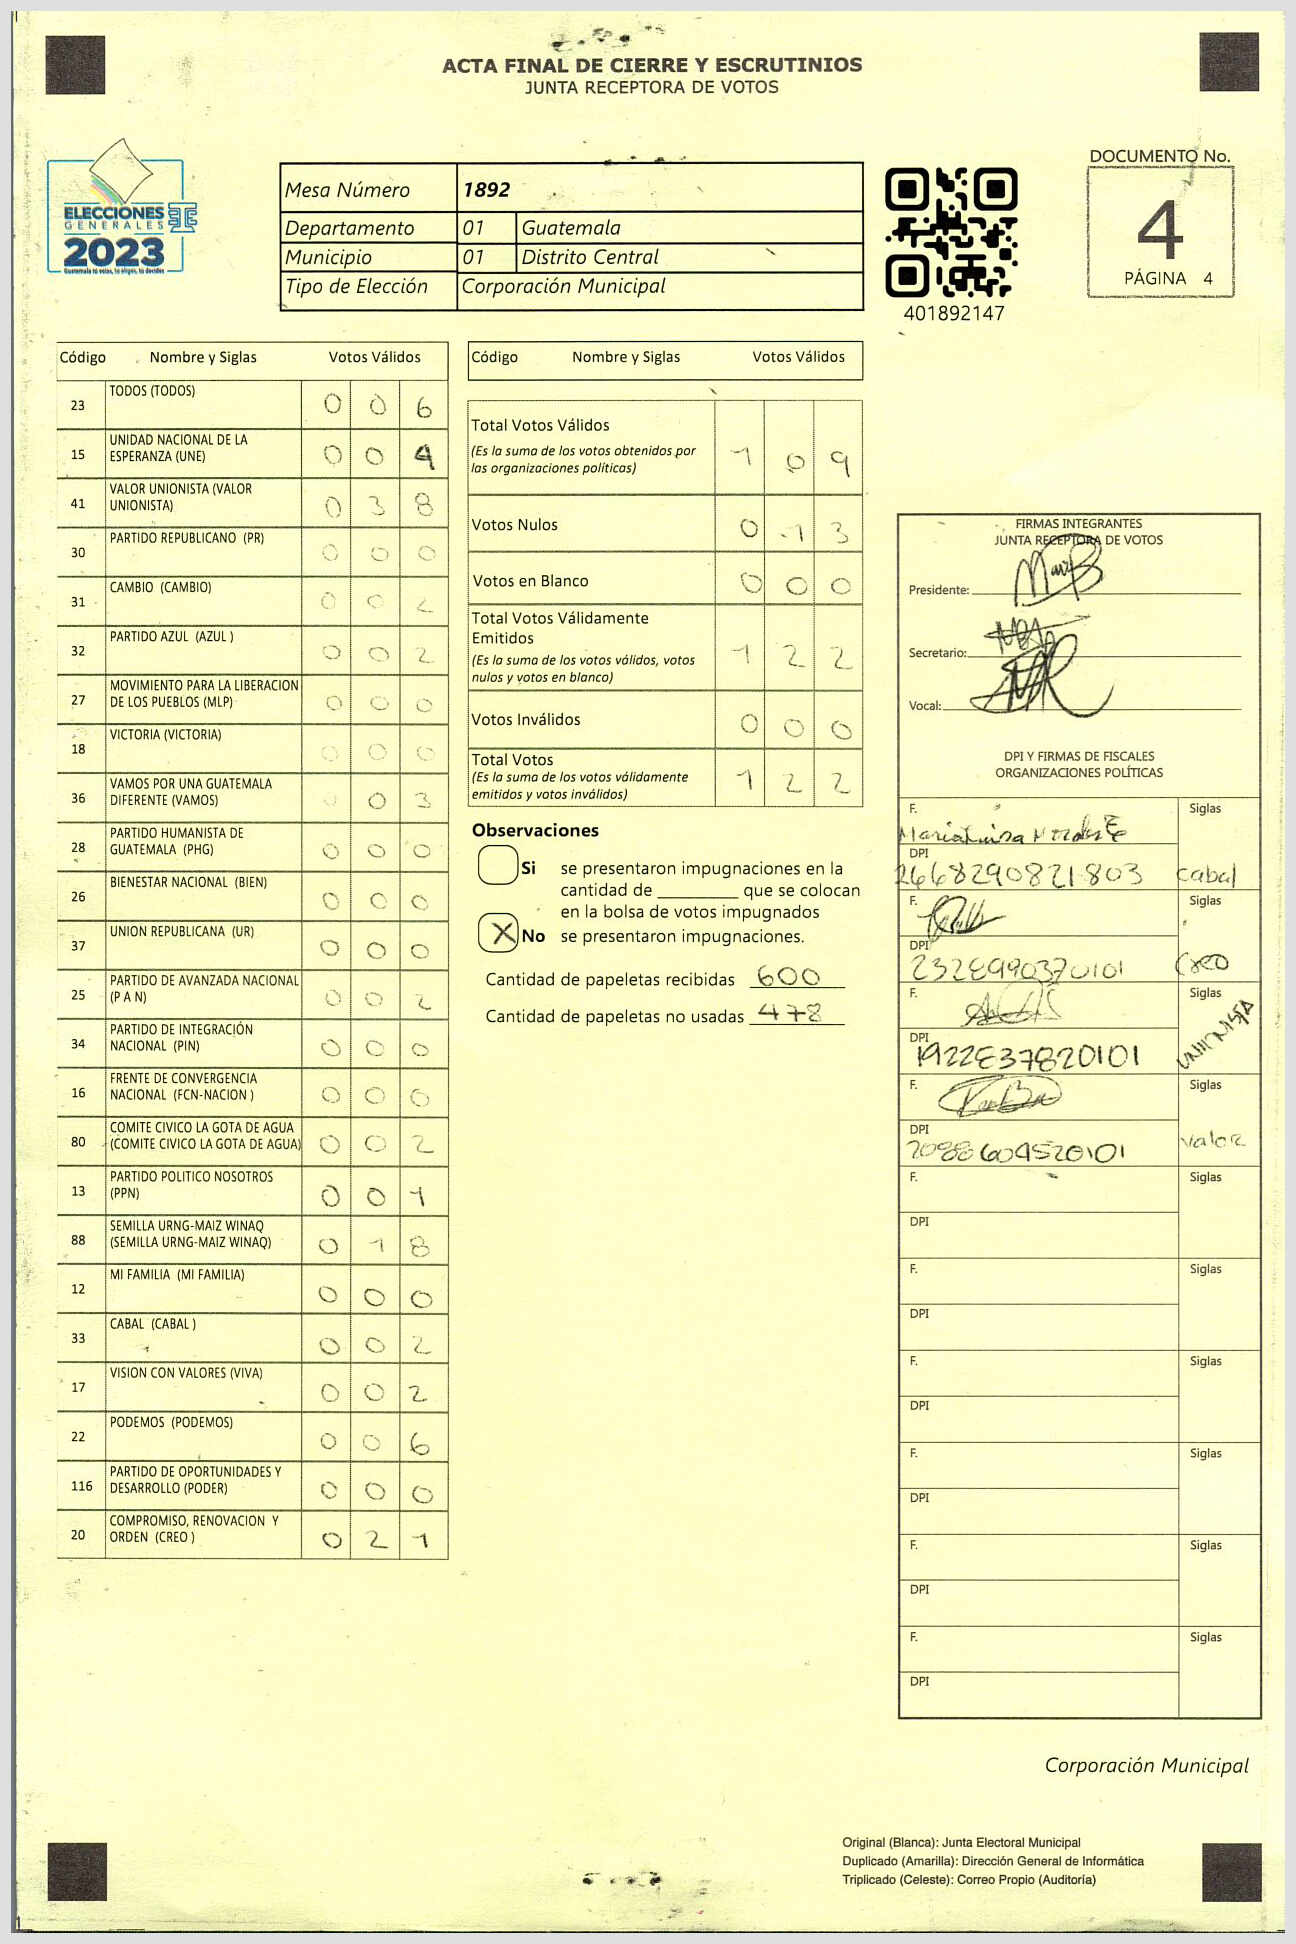 ACTA FINAL DE CIERRE Y ESCRUTINIOS
JUNTA RECEPTORA DE VOTOS
ELECCIONES
GENERALES
2023
Guatemala tú votas, tú eliges, tú decides
Mesa Número 1892
Departamento 01 Guatemala
Municipio 01 Distrito Central
Tipo de Elección Corporación Municipal
401892147
DOCUMENTO No.
4
PÁGINA 4
Código Nombre y Siglas Votos Válidos
23 TODOS (TODOS) 0 0 6
15 UNIDAD NACIONAL DE LA
ESPERANZA (UNE) 0 0 4
41 VALOR UNIONISTA (VALOR
UNIONISTA) 0 3 8
30 PARTIDO REPUBLICANO (PR) 0 0 0
31 CAMBIO (CAMBIO) 0 0 2
32 PARTIDO AZUL (AZUL ) 0 0 2
27 MOVIMIENTO PARA LA LIBERACION
DE LOS PUEBLOS (MLP) 0 0 0
18 VICTORIA (VICTORIA) 0 0 0
36 VAMOS POR UNA GUATEMALA
DIFERENTE (VAMOS) 0 0 3
28 PARTIDO HUMANISTA DE
GUATEMALA (PHG) 0 0 0
26 BIENESTAR NACIONAL (BIEN) 0 0 0
37 UNION REPUBLICANA (UR) 0 0 0
25 PARTIDO DE AVANZADA NACIONAL
(P A N) 0 0 2
34 PARTIDO DE INTEGRACIÓN
NACIONAL (PIN) 0 0 0
16 FRENTE DE CONVERGENCIA
NACIONAL (FCN-NACION ) 0 0 0
80 COMITE CIVICO LA GOTA DE AGUA
(COMITE CIVICO LA GOTA DE AGUA) 0 0 2
13 PARTIDO POLITICO NOSOTROS
(PPN) 0 0 1
88 SEMILLA URNG-MAIZ WINAQ
(SEMILLA URNG-MAIZ WINAQ) 0 1 8
12 MI FAMILIA (MI FAMILIA) 0 0 0
33 CABAL (CABAL ) 0 0 2
17 VISION CON VALORES (VIVA) 0 0 2
22 PODEMOS (PODEMOS) 0 0 6
116 PARTIDO DE OPORTUNIDADES Y
DESARROLLO (PODER) 0 0 0
20 COMPROMISO, RENOVACION Y
ORDEN (CREO ) 0 2 1
Código Nombre y Siglas Votos Válidos
Total Votos Válidos
(Es la suma de los votos obtenidos por
las organizaciones políticas) 1 0 9
Votos Nulos 0 1 3
Votos en Blanco 0 0 0
Total Votos Válidamente
Emitidos
(Es la suma de los votos válidos, votos
nulos y votos en blanco) 1 2 2
Votos Inválidos 0 0 0
Total Votos
(Es la suma de los votos válidamente
emitidos y votos inválidos) 1 2 2
Observaciones
Si se presentaron impugnaciones en la
cantidad de ________ que se colocan
en la bolsa de votos impugnados
X No se presentaron impugnaciones.
Cantidad de papeletas recibidas 600
Cantidad de papeletas no usadas 478
FIRMAS INTEGRANTES
JUNTA RECEPTORA DE VOTOS
Presidente:
Secretario:
Vocal:
DPI Y FIRMAS DE FISCALES
ORGANIZACIONES POLÍTICAS
F. Siglas
Maria Luisa
DPI
2668290821803 cabal
F. Siglas
DPI
Creo
F. Siglas
DPI
UNIONISTA
F. Siglas
DPI
valor
F. Siglas
DPI
F. Siglas
DPI
F. Siglas
DPI
F. Siglas
DPI
F. Siglas
DPI
F. Siglas
DPI
Corporación Municipal
Original (Blanca): Junta Electoral Municipal
Duplicado (Amarilla): Dirección General de Informática
Triplicado (Celeste): Correo Propio (Auditoría)